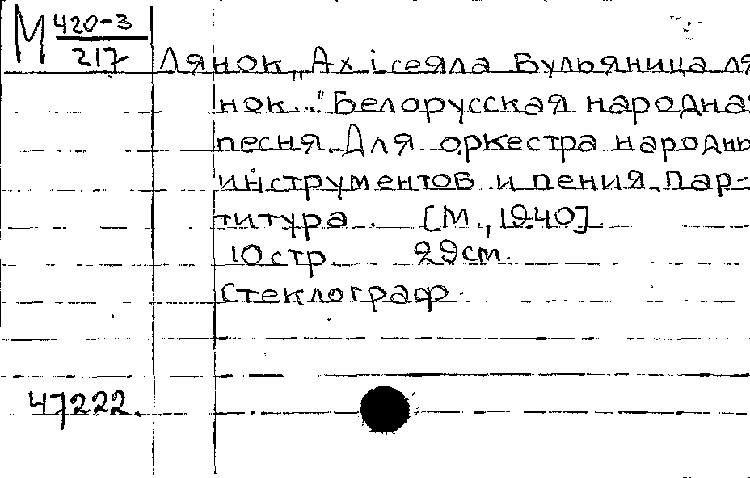 М 420-3
217
Лянок „Ах і сеяла Вульяница ля
нок..." Белорусская народная
песня. Для оркестра народны
инструментов и пения. Пар-
титура. [М., 1940].
10 стр. 29 cm.
Стеклограф.
47222.